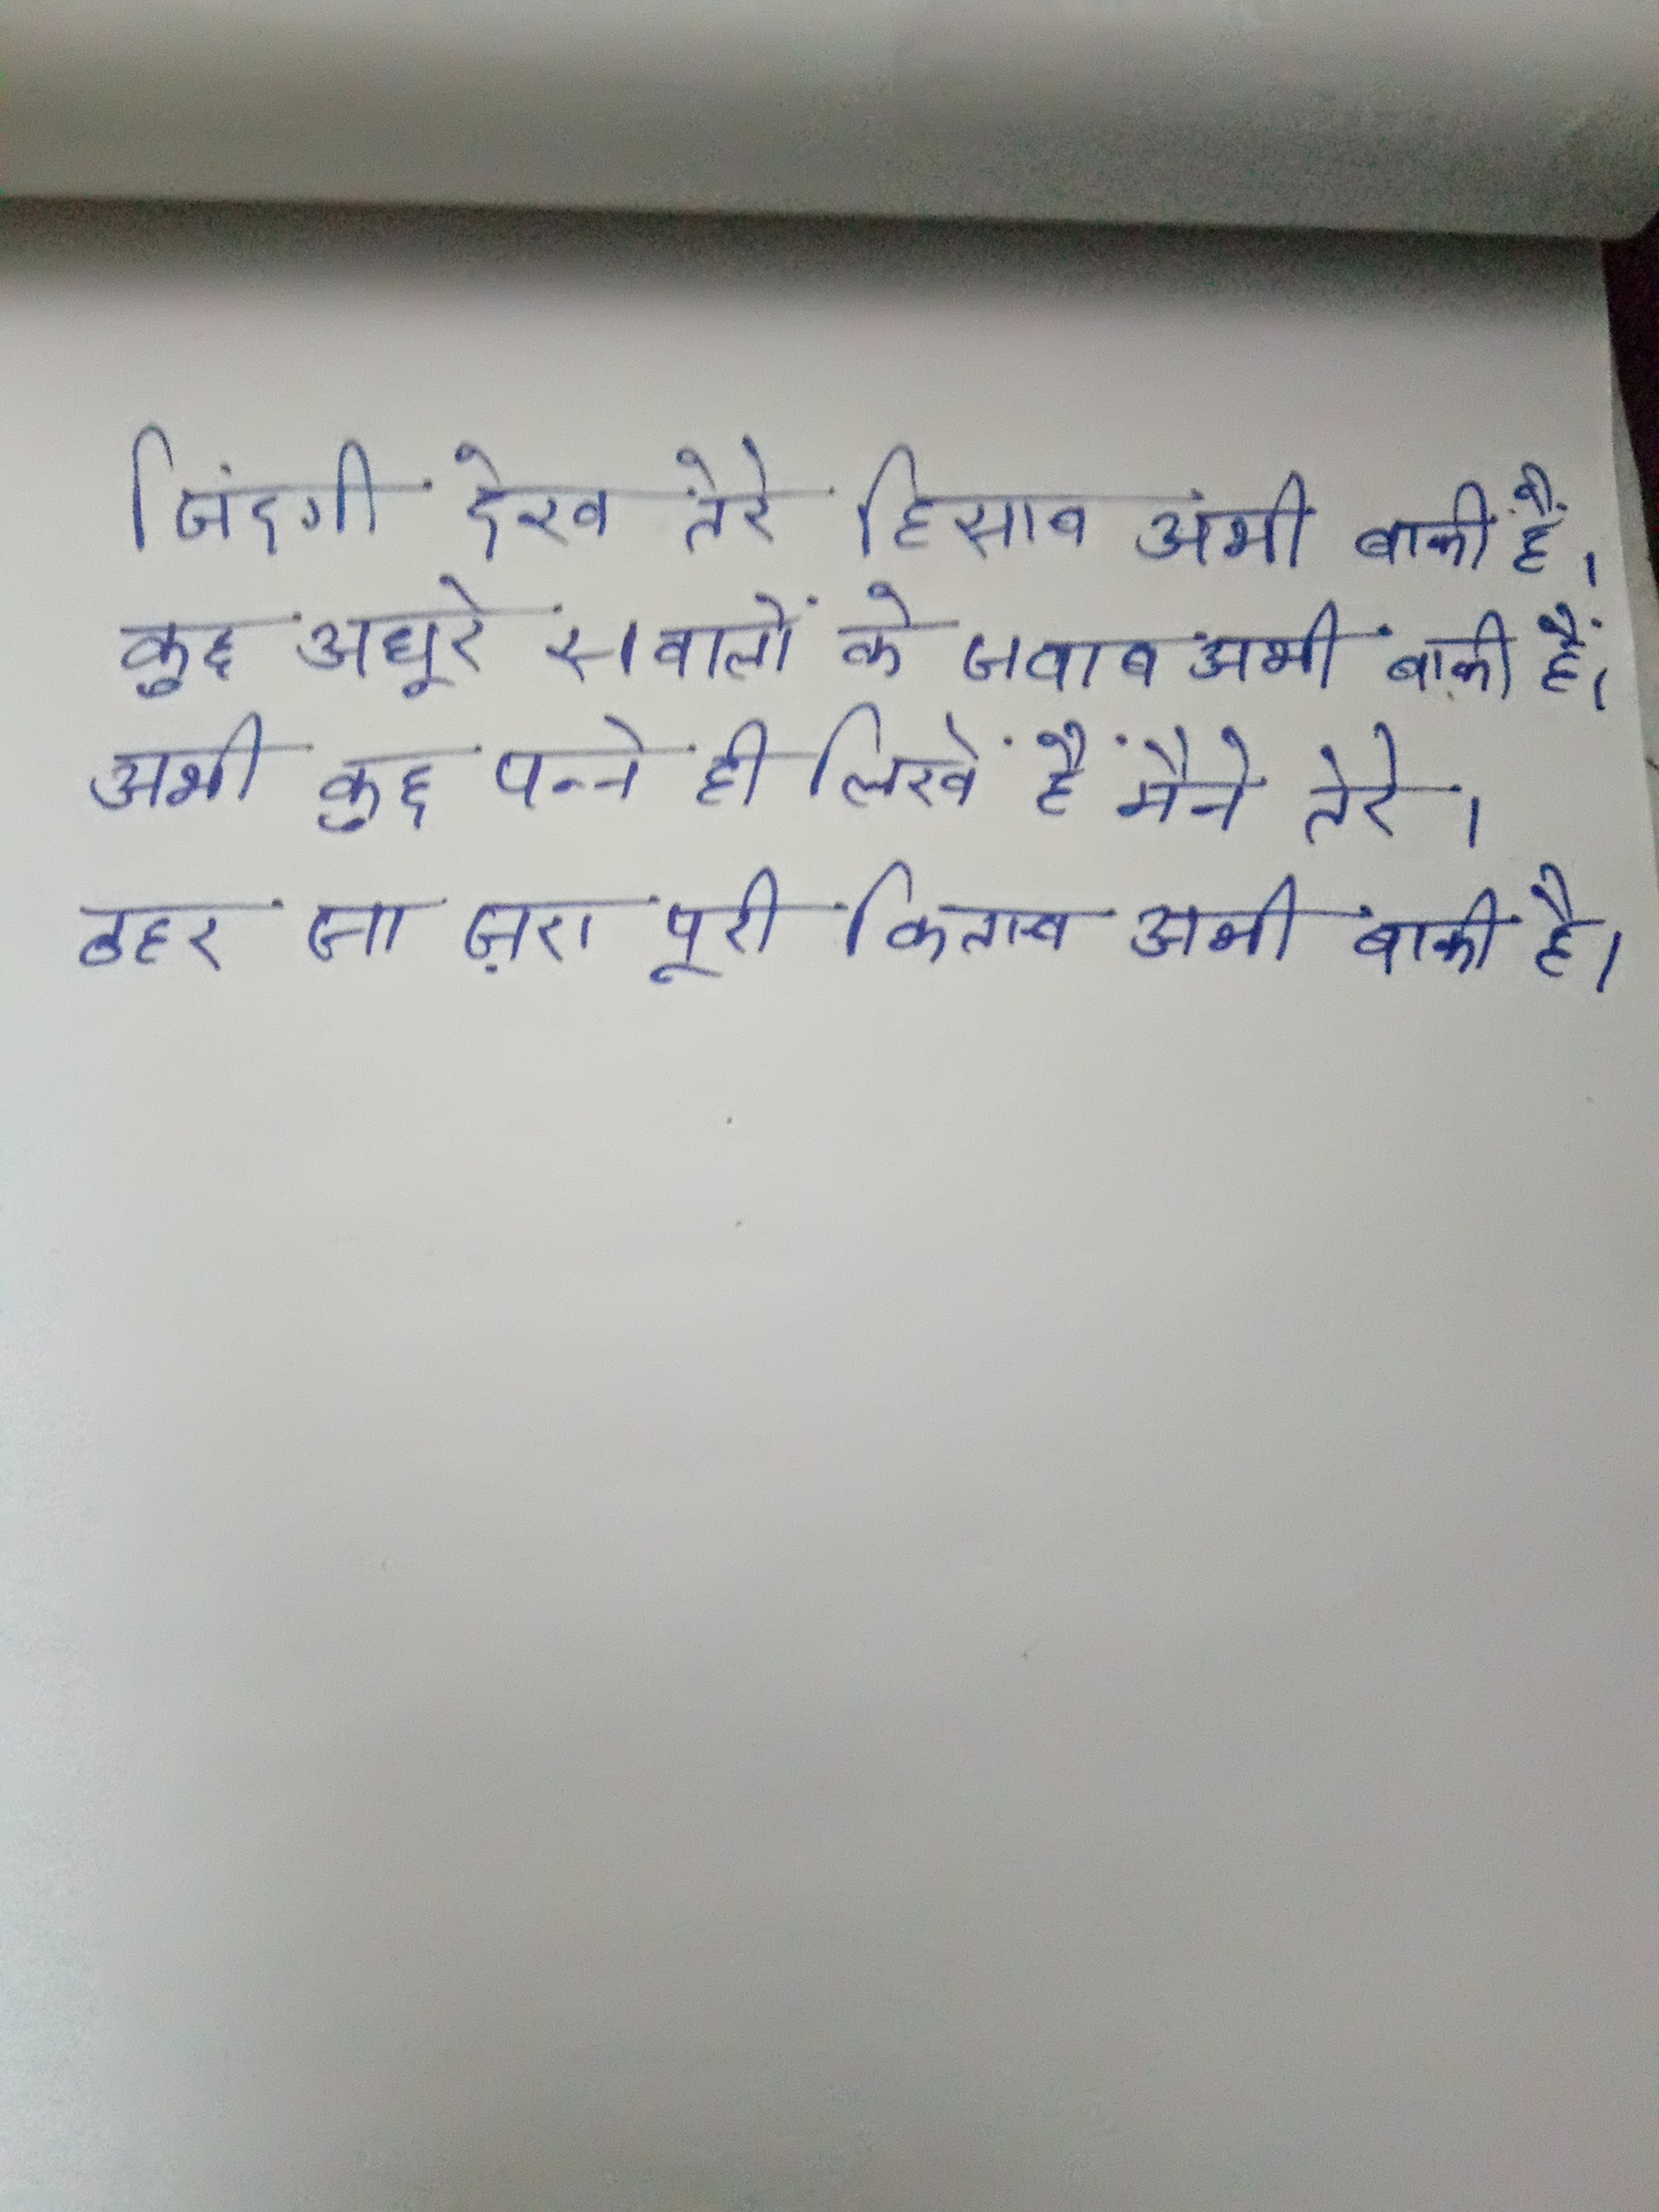 जिंदगी देख तेरे हिसाब अभी बाकी हैं,
कुछ अधूरे सवालों के जवाब अभी बाक़ी हैं।
अभी कुछ पन्ने ही लिखें हैं मैंने तेरे।
ठहर जा ज़रा पूरी किताब अभी बाकी है।